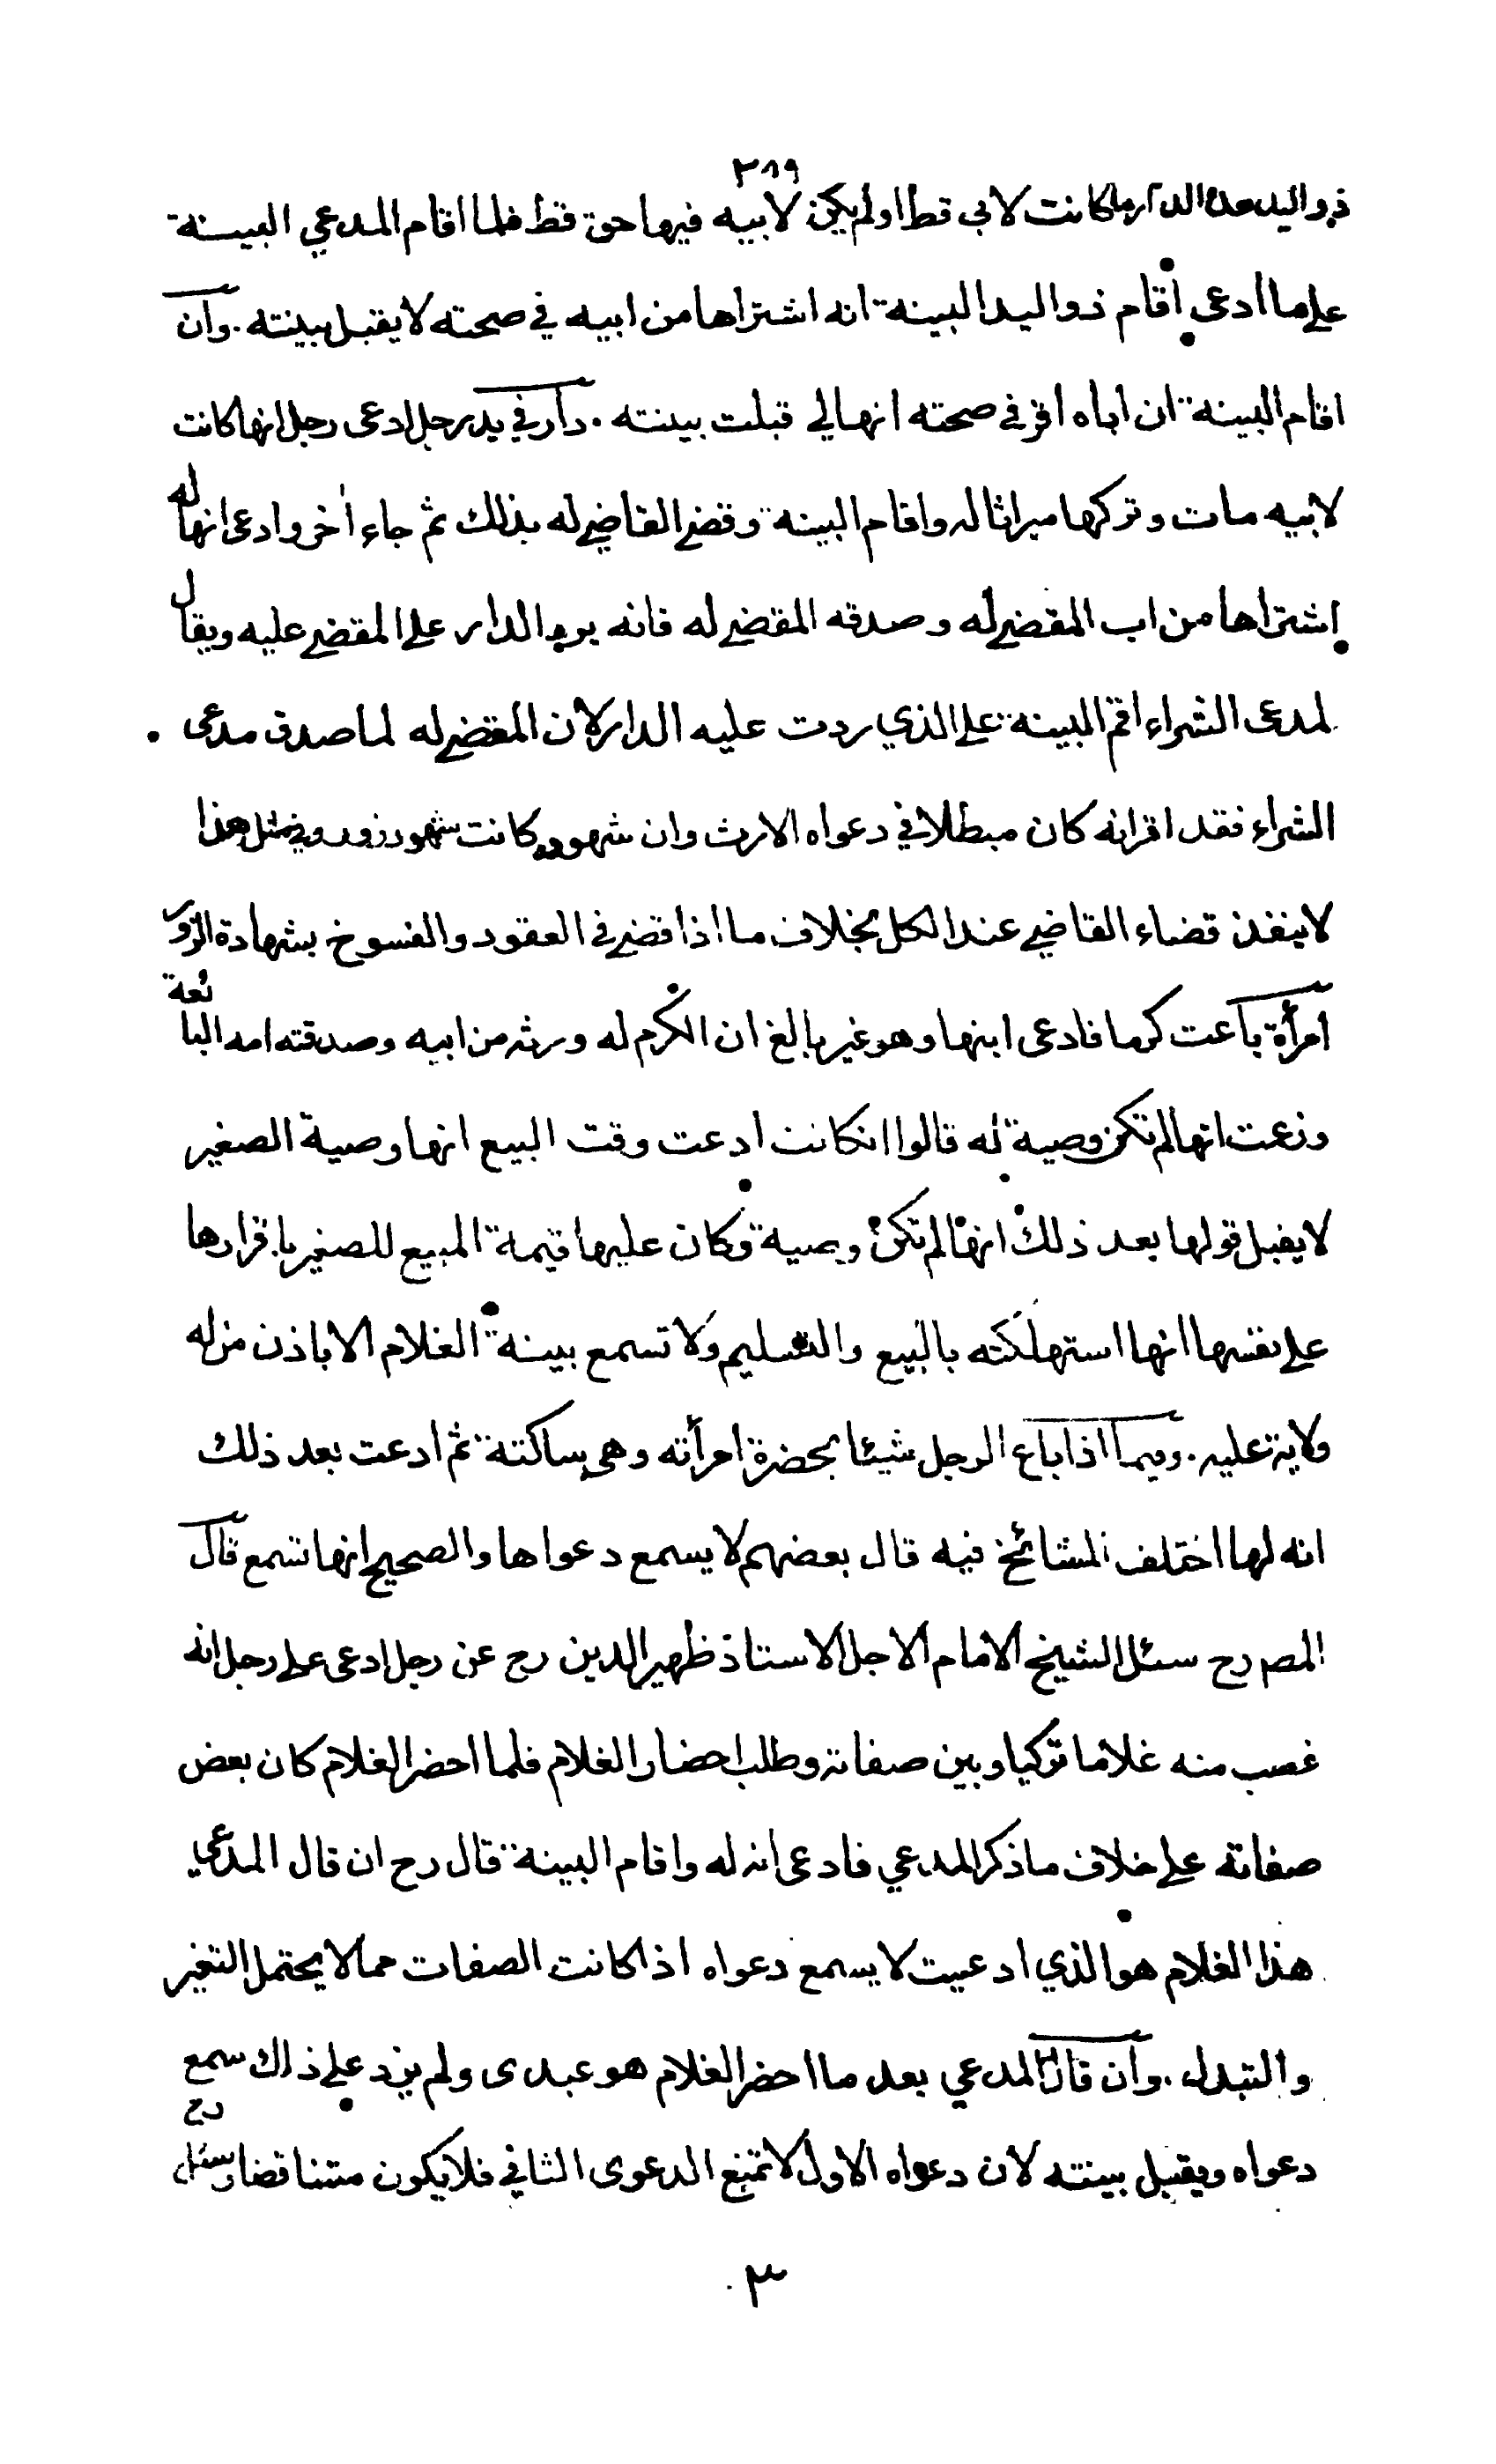 ٣٨٩
ذو اليد هذه الدار ما كانت لابى قط اولم يكن لابيه فيها حق قط فلما اقام المدعي البينة
على ما ادعى اقام ذو اليد البينة انه اشتراها من ابيه في صحته لا يقبل بينته . وان
اقام البينة ان اباه اقر في صحته انها لي قبلت بينته . دار في يد رجل ادعى رجل انها كانت
لابيه مات وتركها ميراثا له واقام البينة وقضى القاضي له بذلك ثم جاء اخر وادعى انها له
اشتراها من اب المقضي له وصدقه المقضي له فانه يرد الدار على المقضي عليه ويقال
لمدعى الشراء اقم البينة على الذي ردت عليه الدار لان المقضي له لما صدق مدعى
الشراء فقد اقر انه كان مبطلا في دعواه الارث وان شهوده كانت شهود زور وفي مثل هذا
لا ينفذ قضاء القاضي عند الكل بخلاف ما اذا قضى في العقود والفسوخ بشهادة الزور
امرأة باعت كرما فادعى ابنها وهو غير بالغ ان الكرم له ورثه من ابيه وصدقته امه البائعة
وزعمت انها لم تكن وصية له قالوا ان كانت ادعت وقت البيع انها وصية الصغير
لا يقبل قولها بعد ذلك انها لم تكن وصية وكان عليها قيمة المبيع للصغير باقرارها
على نفسها انها استهلكته بالبيع والتسليم ولا تسمع بينة الغلام الا باذن من له
ولاية عليه . وفيما اذا باع الرجل شيئا بحضرة امرأته وهي ساكتة ثم ادعت بعد ذلك
انه لها اختلف المشائخ فيه قال بعضهم لا يسمع دعواها والصحيح انها تسمع قال
المصـ رح سئل الشيخ الامام الاجل الاستاذ ظهير الدين رح عن رجل ادعى على رجل انه
غصب منه غلاما تركيا وبين صفاته وطلب احضار الغلام فلما احضر الغلام كان بعض
صفاته على خلاف ما ذكر المدعي فادعى انه له واقام البينة قال رح ان قال المدعي
هذا الغلام هو الذي ادعيت لا يسمع دعواه اذا كانت الصفات مما لا يحتمل التغير
والتبدل . وان قال المدعي بعد ما احضر الغلام هو عبدى ولم يزد على ذلك سمع
دعواه ويقبل بينته لان دعواه الاول لا تمنع الدعوى الثاني فلا يكون متناقضا وسئل رح
٣